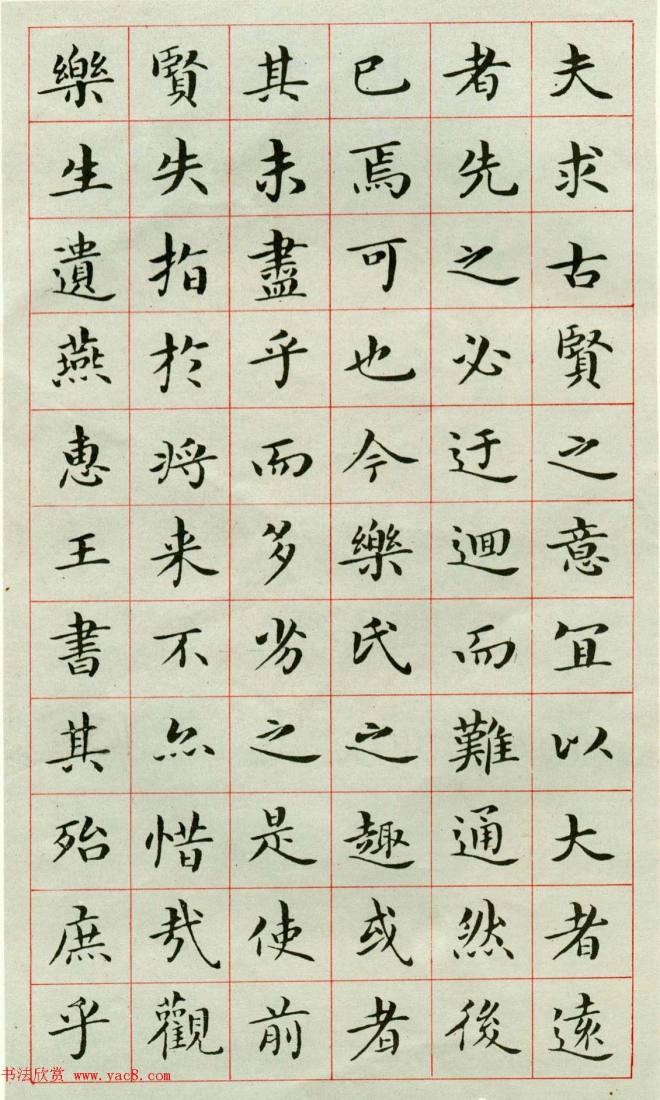 夫求古賢之意宜以大者遠
者先之必迂迴而難通然後
已焉可也今樂氏之趣或者
其未盡乎而多劣之是使前
賢失指於將来不亦惜哉觀
樂生遺燕惠王書其殆庶乎
书法欣赏 www.yac8.com